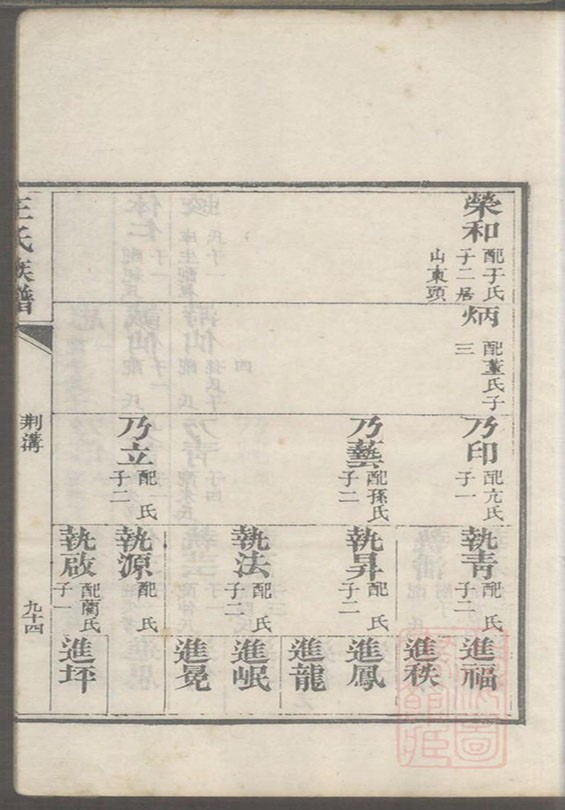 榮和
配于氏
子二居
山東頭
炳
配董氏子
三
乃印
配亢氏
子一
乃藝
配孫氏
子二
乃立
配 氏
子二
執青
配 氏
子二
執昇
配 氏
子二
執法
配 氏
子二
執源
配 氏
執啟
配蘭氏
子一
進福
進秩
進鳳
進龍
進岷
進冕
進坪
王氏族譜
荆溝
九十四